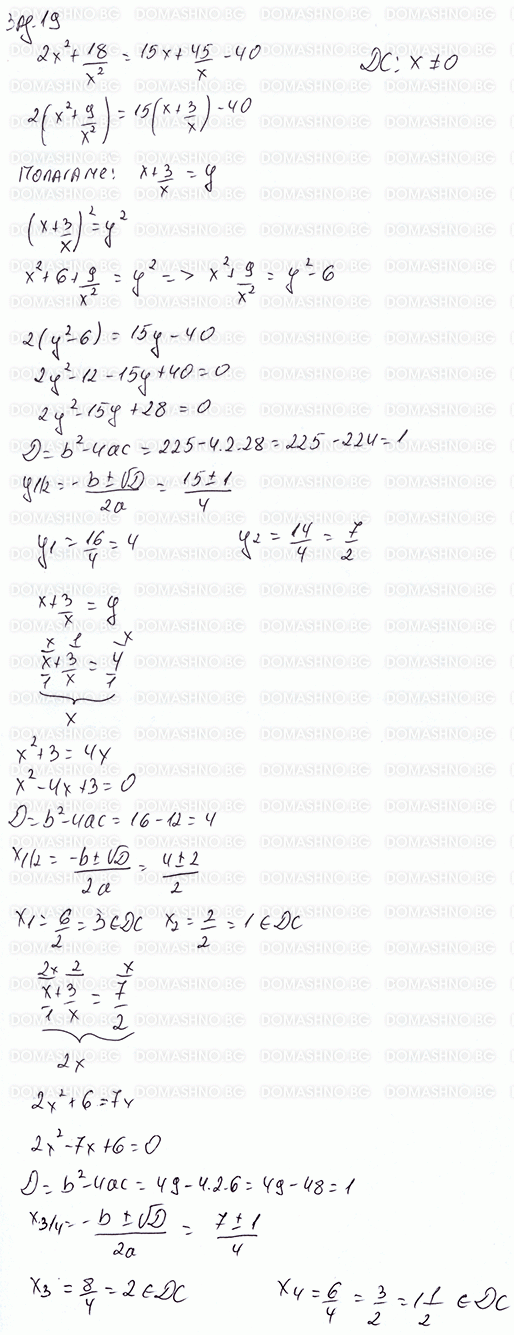 Зад. 19
2x² + 18/x² = 15x + 45/x - 40 DC: x ≠ 0
2(x² + 9/x²) = 15(x + 3/x) - 40
Полагаме: x + 3/x = y
(x + 3/x)² = y²
x² + 6 + 9/x² = y² => x² + 9/x² = y² - 6
2(y² - 6) = 15y - 40
2y² - 12 - 15y + 40 = 0
2y² - 15y + 28 = 0
D = b² - 4ac = 225 - 4.2.28 = 225 - 224 = 1
y1/2 = -b ± √D / 2a = 15 ± 1 / 4
y1 = 16/4 = 4 y2 = 14/4 = 7/2
x + 3/x = y
x 1 x
x/1 + 3/x = 4/1
x
x² + 3 = 4x
x² - 4x + 3 = 0
D = b² - 4ac = 16 - 12 = 4
x1/2 = -b ± √D / 2a = 4 ± 2 / 2
x1 = 6/2 = 3 ∈ DC x2 = 2/2 = 1 ∈ DC
2x 2 x
x/1 + 3/x = 7/2
2x
2x² + 6 = 7x
2x² - 7x + 6 = 0
D = b² - 4ac = 49 - 4.2.6 = 49 - 48 = 1
x3/4 = -b ± √D / 2a = 7 ± 1 / 4
x3 = 8/4 = 2 ∈ DC x4 = 6/4 = 3/2 = 1 1/2 ∈ DC